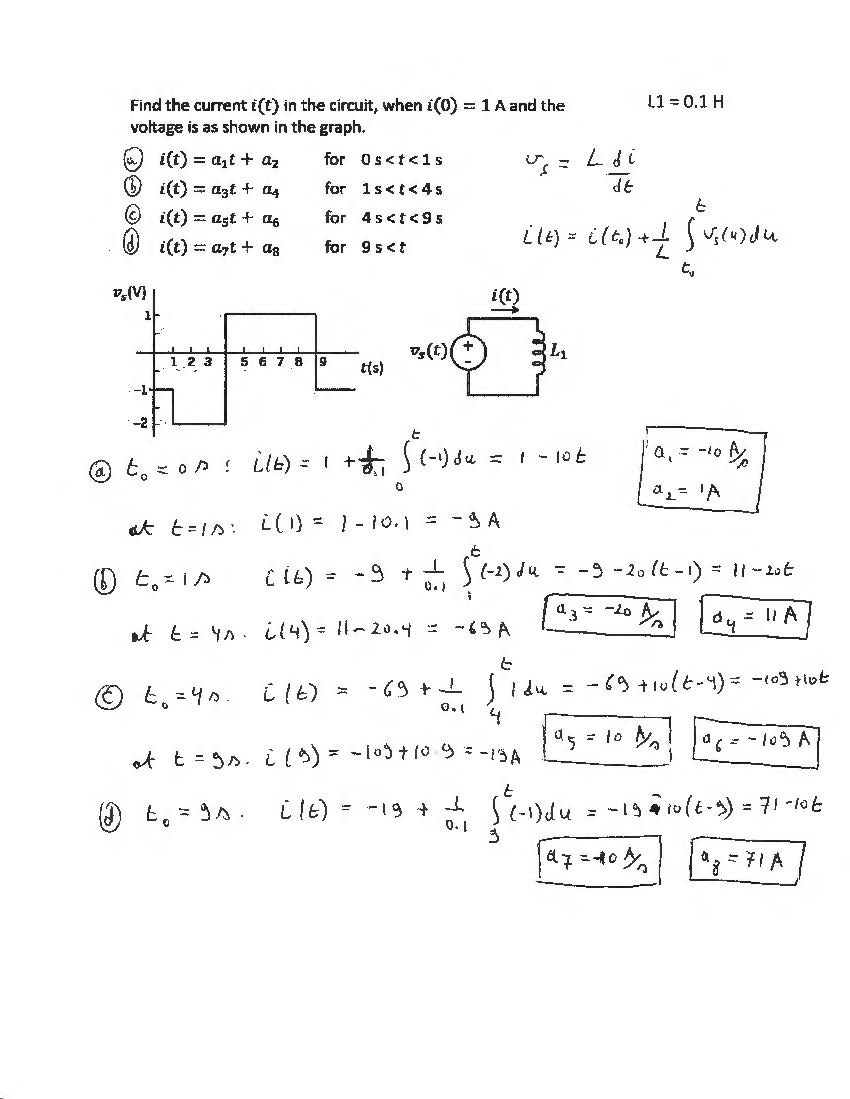 Find the current i(t) in the circuit, when i(0) = 1 A and the L1 = 0.1 H
voltage is as shown in the graph.
(a) i(t) = a₁t + a₂ for 0 s < t < 1 s
(b) i(t) = a₃t + a₄ for 1 s < t < 4 s
(c) i(t) = a₅t + a₆ for 4 s < t < 9 s
(d) i(t) = a₇t + a₈ for 9 s < t
v_s = L di/dt
i(t) = i(t₀) + 1/L ∫_{t₀}^{t} v_s(u) du
v_s(V)
1
1 2 3 5 6 7 8 9
t(s)
-1
-2
i(t)
v_s(t) + - L₁
(a) t₀ = 0 s : i(t) = 1 + 1/0.1 ∫_0^t (-1) du = 1 - 10t
a₁ = -10 A/s
a₂ = 1A
at t = 1 s: i(1) = 1 - 10.1 = -9 A
(b) t₀ = 1 s i(t) = -9 + 1/0.1 ∫_1^t (-2) du = -9 - 20(t-1) = 11 - 20t
at t = 4 s. i(4) = 11 - 20.4 = -69 A a₃ = -20 A/s a₄ = 11 A
(c) t₀ = 4 s. i(t) = -69 + 1/0.1 ∫_4^t 1 du = -69 + 10(t-4) = -109 + 10t
at t = 9 s. i(9) = -109 + 10·9 = -19A a₅ = 10 A/s a₆ = -109 A
(d) t₀ = 9 s. i(t) = -19 + 1/0.1 ∫_9^t (-1) du = -19 - 10(t-9) = 71 - 10t
a₇ = -10 A/s a₈ = 71 A